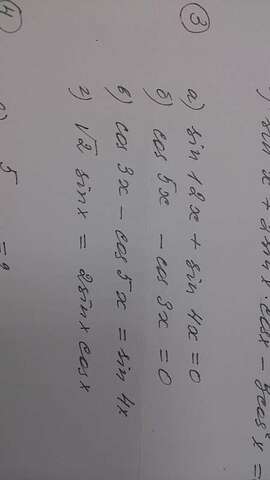 sin x + 2 sin x · cos x - 3 cos² x =
③
а) sin 12x + sin 4x = 0
б) cos 5x - cos 3x = 0
в) cos 3x - cos 5x = sin 4x
г) √2 sin x = 2 sin x cos x
④
5